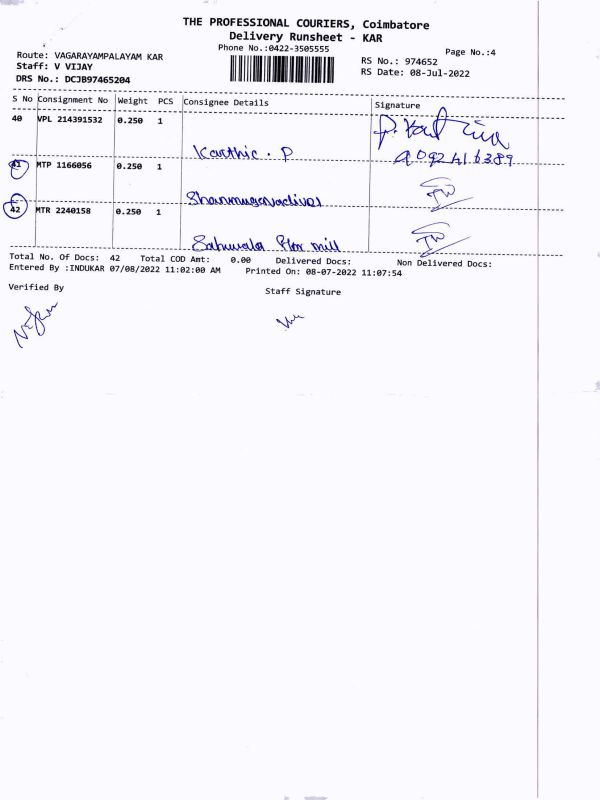 THE PROFESSIONAL COURIERS, Coimbatore
Delivery Runsheet - KAR
Phone No.:0422-3505555
Page No.:4
Route: VAGARAYAMPALAYAM KAR
Staff: V VIJAY
DRS No.: DCJB97465204
RS No.: 974652
RS Date: 08-Jul-2022
S No Consignment No Weight PCS Consignee Details Signature
40 VPL 214391532 0.250 1
Karthic. P
41 MTP 1166056 0.250 1
Shanmugavadivel
42 MTR 2240158 0.250 1
mill
Total No. Of Docs: 42 Total COD Amt: 0.00 Delivered Docs: Non Delivered Docs:
Entered By :INDUKAR 07/08/2022 11:02:00 AM Printed On: 08-07-2022 11:07:54
Verified By
Staff Signature